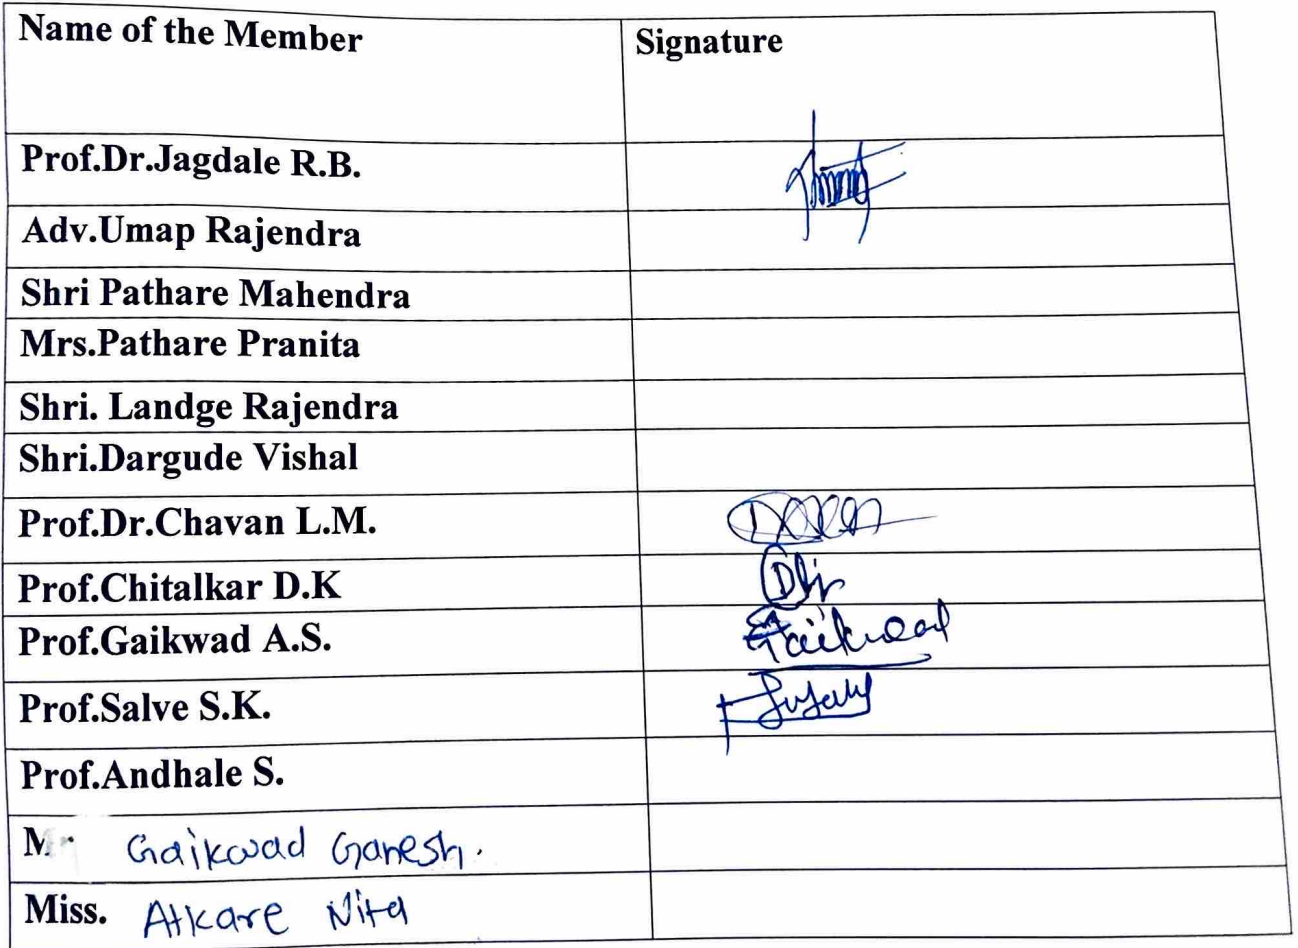 Name of the Member Signature
Prof.Dr.Jagdale R.B.
Adv.Umap Rajendra
Shri Pathare Mahendra
Mrs.Pathare Pranita
Shri. Landge Rajendra
Shri.Dargude Vishal
Prof.Dr.Chavan L.M.
Prof.Chitalkar D.K
Prof.Gaikwad A.S. Gaikwad
Prof.Salve S.K.
Prof.Andhale S.
Mr. Gaikwad Ganesh.
Miss. Atkare Nita